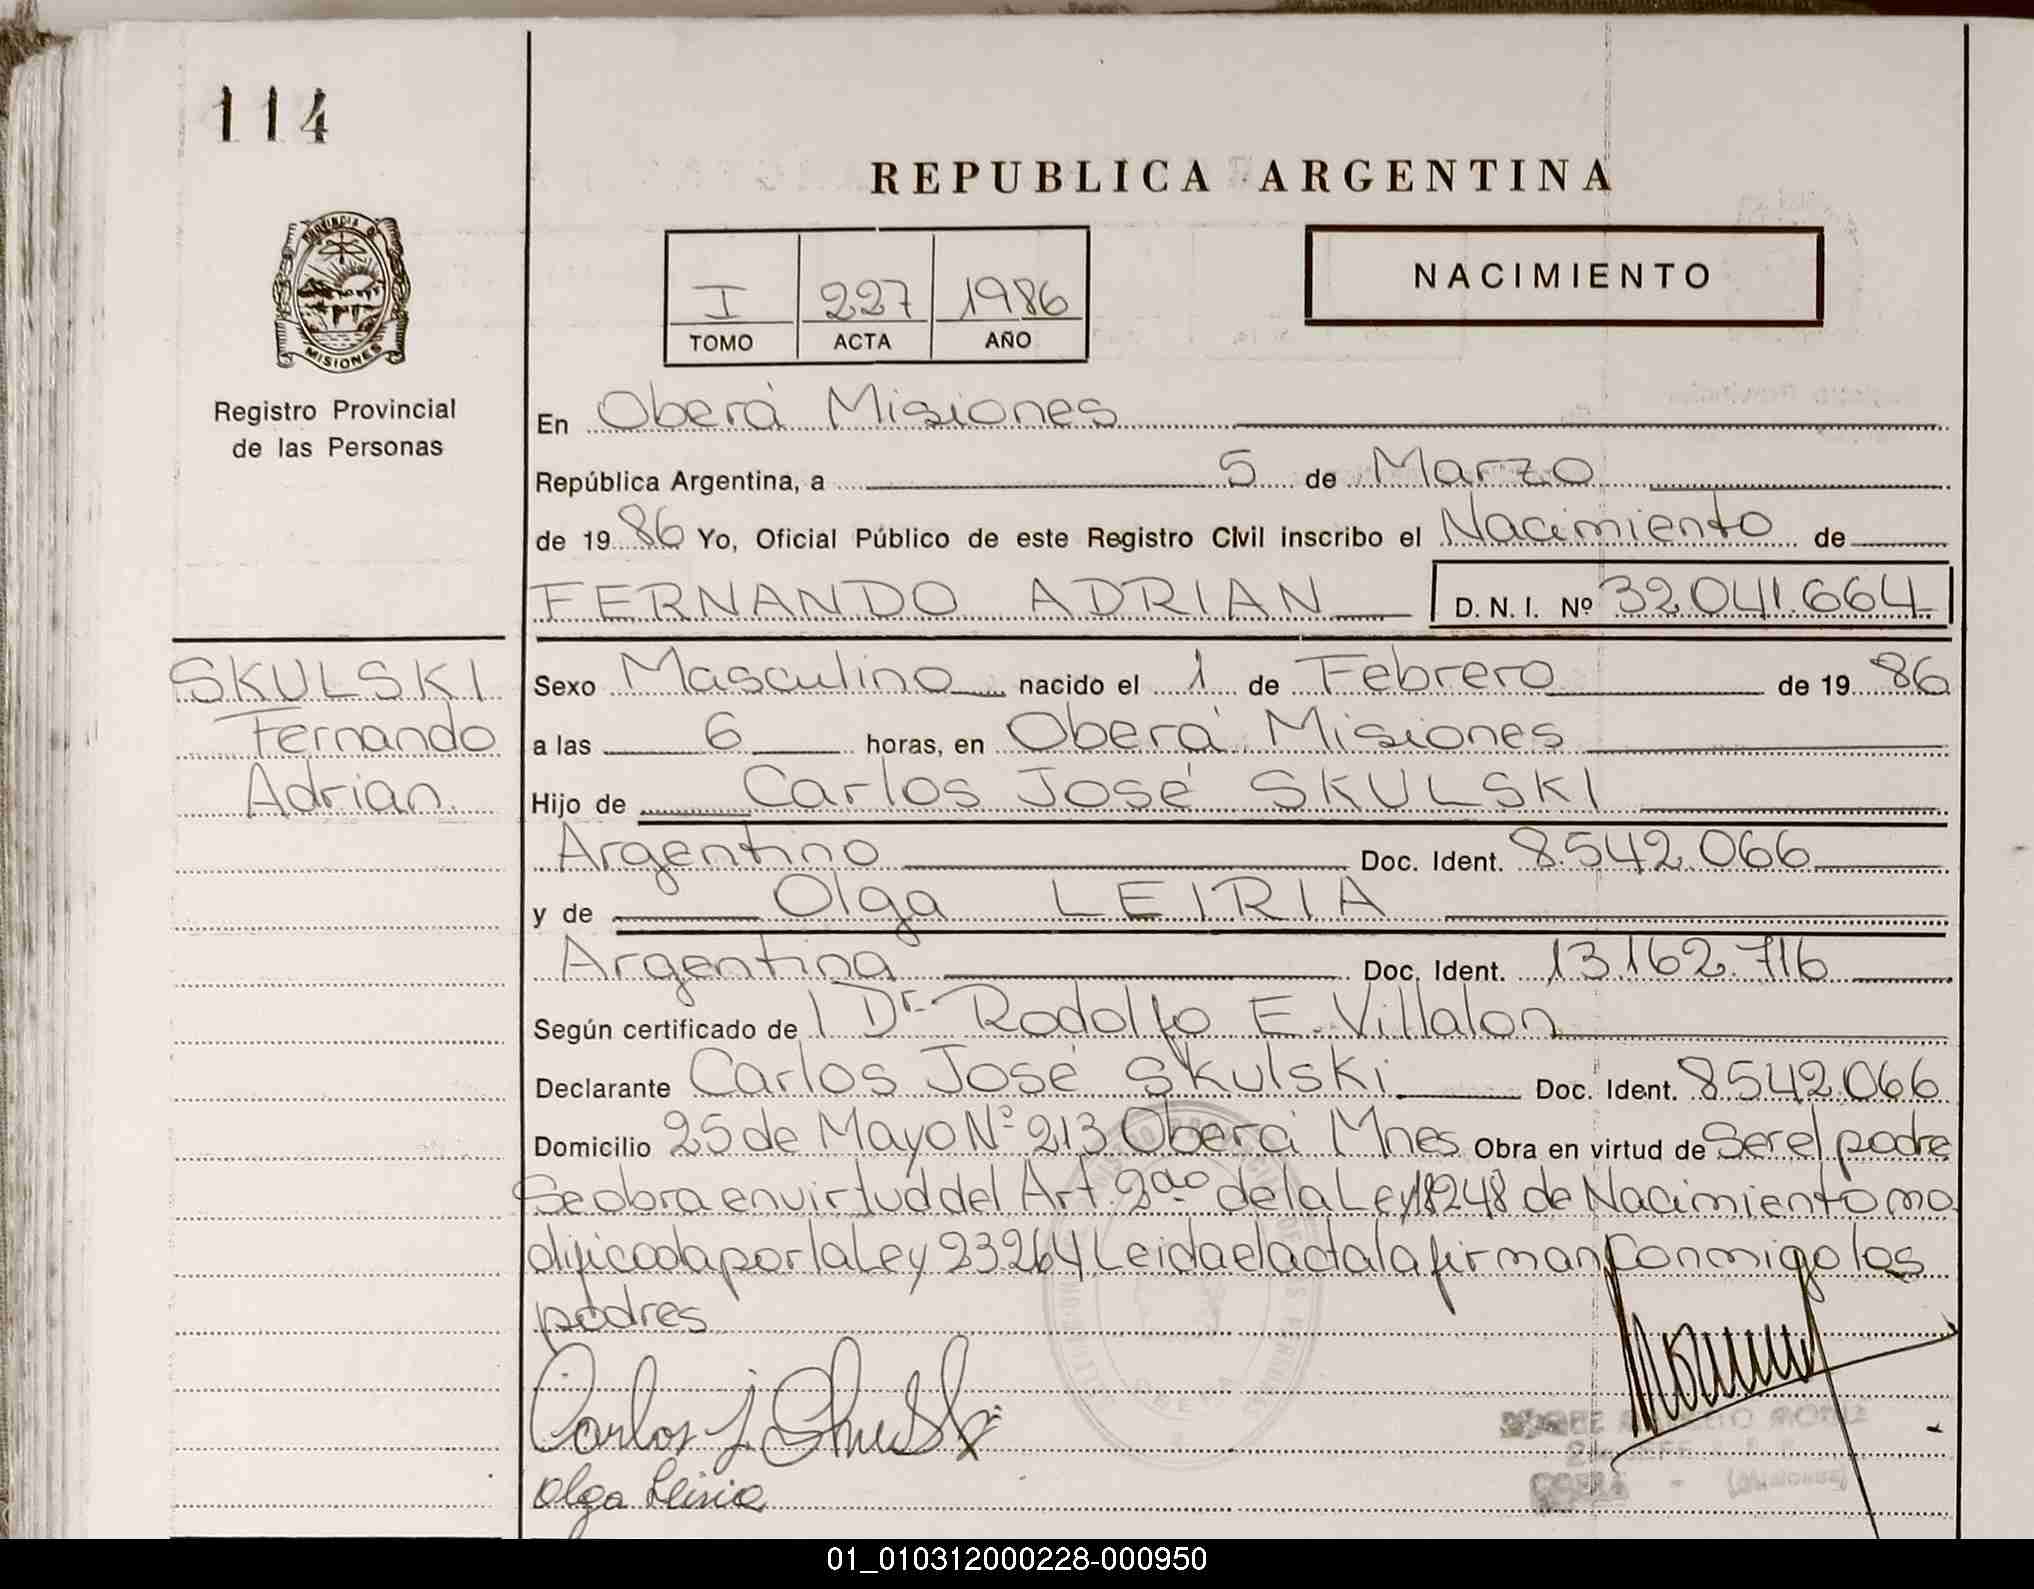 114
REPUBLICA ARGENTINA
PROVINCIA D
MISIONES
NACIMIENTO
I 227 1986
TOMO ACTA AÑO
Registro Provincial
de las Personas
En Oberá Misiones
República Argentina, a 5 de Marzo
de 19 86 Yo, Oficial Público de este Registro Civil inscribo el Nacimiento de
FERNANDO ADRIAN D. N. I. Nº 32.041.664
SKULSKI
Fernando
Adrian.
Sexo Masculino nacido el 1 de Febrero de 19 86
a las 6 horas, en Oberá Misiones
Hijo de Carlos José SKULSKI
Argentino Doc. Ident. 8.542.066
y de Olga LEIRIA
Argentina Doc. Ident. 13.162.716
Según certificado de l Dr. Rodolfo E. Villalon
Declarante Carlos José Skulski Doc. Ident. 8542.066
Domicilio 25 de Mayo Nº 213 Oberá Mnes Obra en virtud de Ser el padre
Se obra en virtud del Art. 2do de la Ley 18248 de Nacimiento mo
dificada por la Ley 23264 Leida el acta la firman conmigo los
padres
Carlos J. Skulski
Olga Leiria
OBERA - (Misiones)
01_010312000228-000950